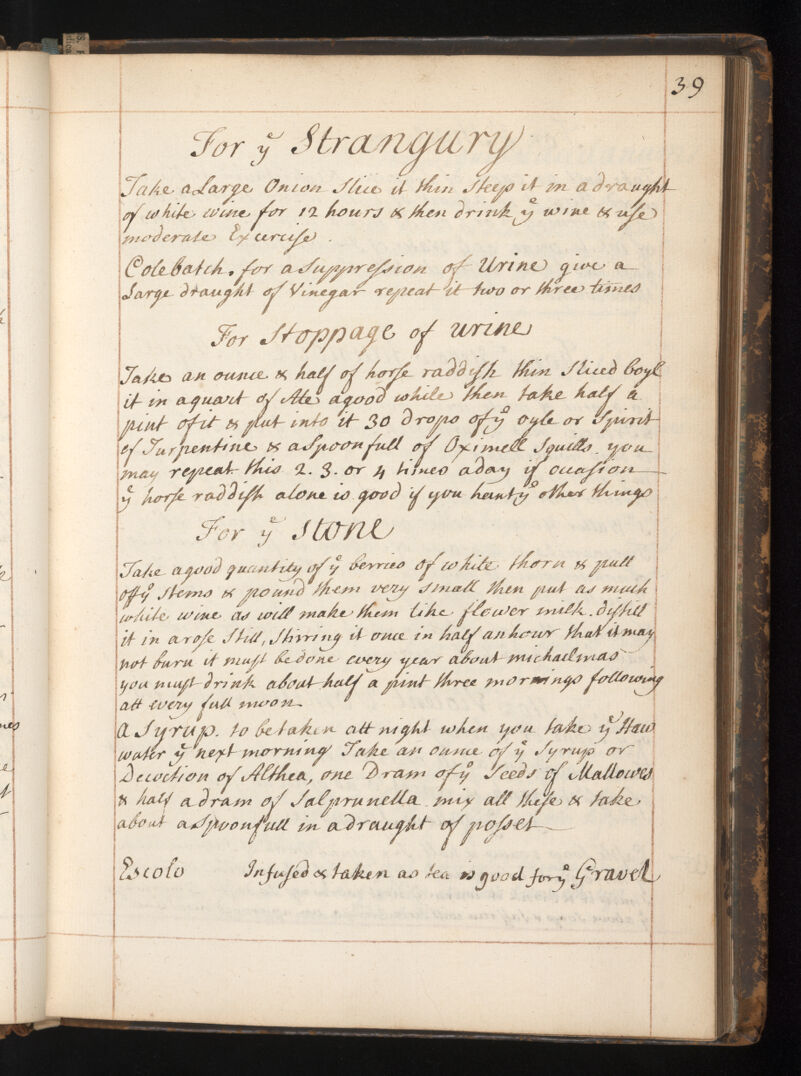 39
For yᵉ Strangury
Take a Large Onion slice it thin steep it in a draught
of white wine for 12 hours & then drink yᵉ wine & use
moderate Excercise.
Colebatch. for a Suppression of Urine give a
Large draught of Vinegar repeat it two or three times
For Stoppage of urine
Take an ounce & half of horse raddish thin sliced boyl
it in a quart of Ale a good while then take half a
pint of it & put into it 30 drops of yᵉ oyle or Spirit
of Turpentine & a Spoonfull of Oximell Squills you
may repeat this 2. 3. or 4 times a day if occasion
yᵉ horse raddish alone is good if you hant yᵉ other things
For yᵉ Stone
Take a good quantity of yᵉ berries of white thorn & pull
off yᵉ stems & pound them very small then put as much
white wine as will make them like flower milk. distill
it in a rose Still, Stirring it once in half an hour that it may
not burn it must be done every year about michaelmas
you must drink about half a pint three mornings following
att every full moon
A Syrup. to be taken att night when you take yᵉ Haw
water yᵉ next morning Take an ounce of yᵉ Syrup or
Decoction of Althea, one Dram of yᵉ Seeds of Mallowes
& half a dram of Salprunella mix all these & take
about a Spoonfull in a draught of posset
Escolo Infused & taken as tea is good for yᵉ Gravel